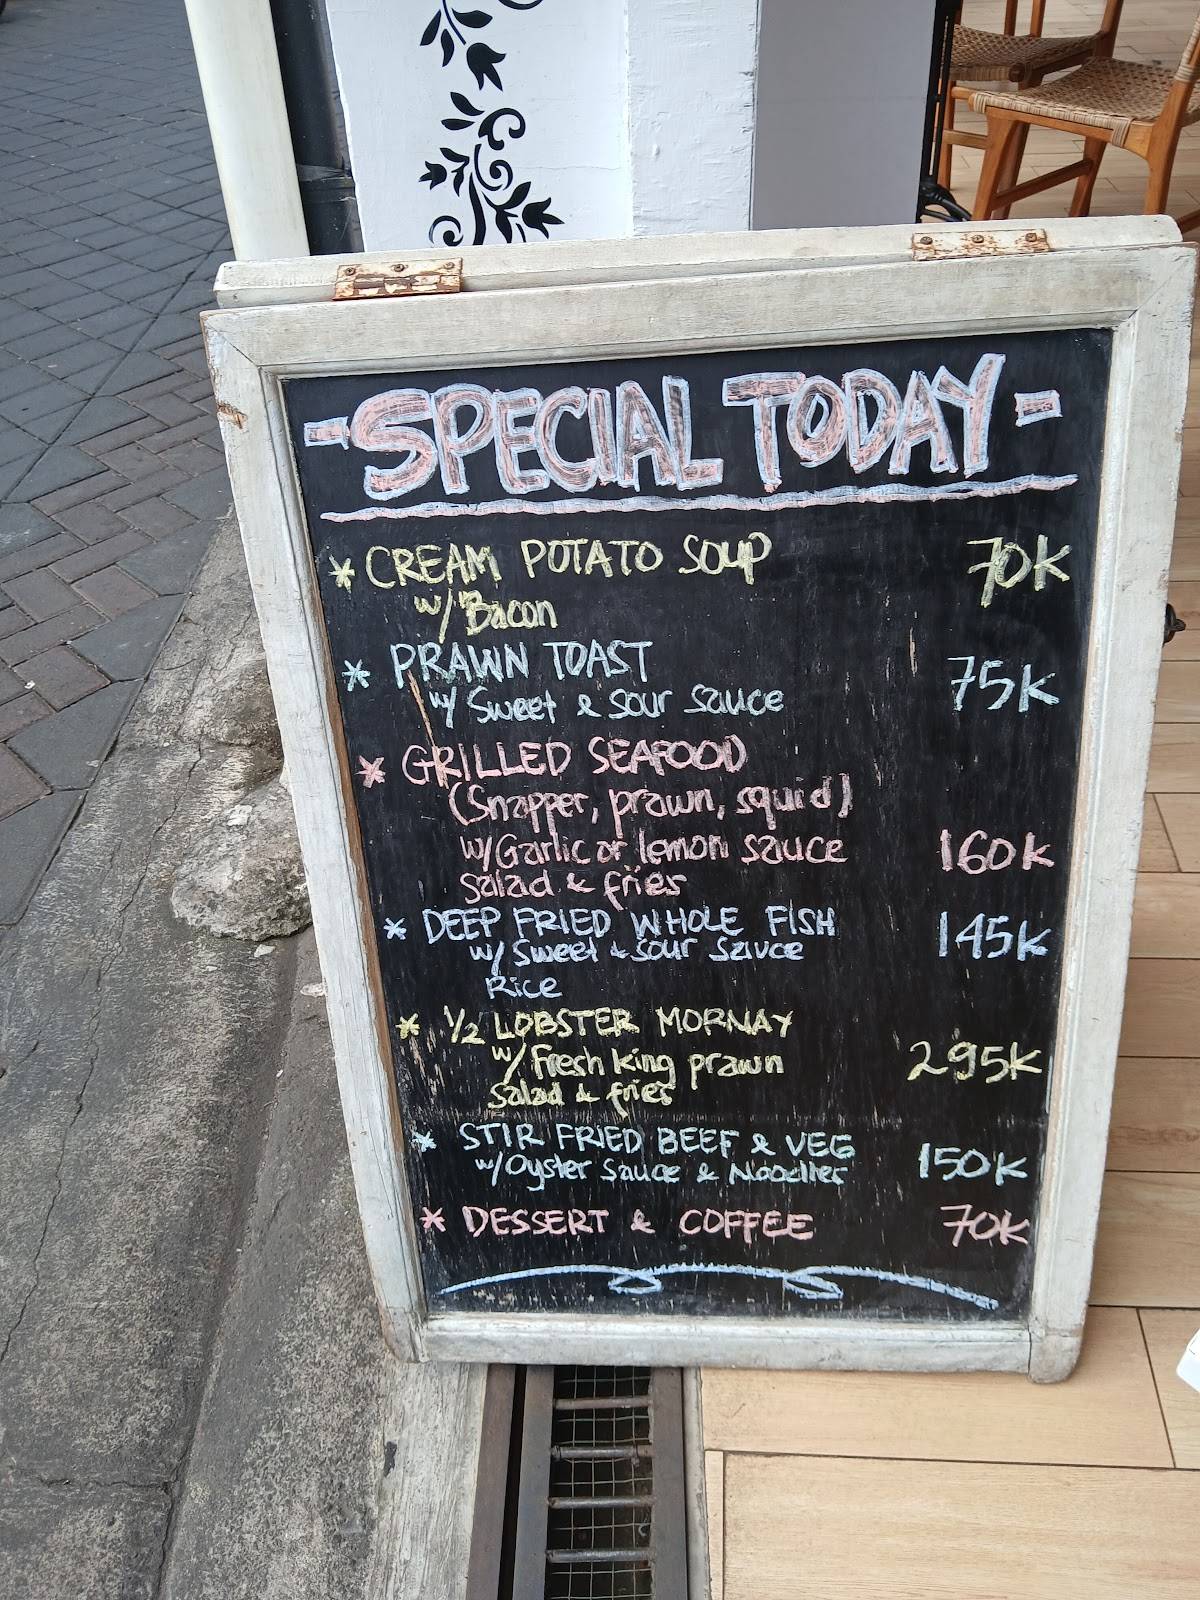 -SPECIAL TODAY-
* CREAM POTATO SOUP 70K
w/ Bacon
* PRAWN TOAST 75K
w/ Sweet & sour sauce
* GRILLED SEAFOOD
(Snapper, prawn, squid)
w/ Garlic or lemon sauce 160K
salad & fries
* DEEP FRIED WHOLE FISH 145K
w/ Sweet & sour sauce
Rice
* 1/2 LOBSTER MORNAY
w/ Fresh king prawn 295K
salad & fries
* STIR FRIED BEEF & VEG 150K
w/ Oyster sauce & Noodles
* DESSERT & COFFEE 70K